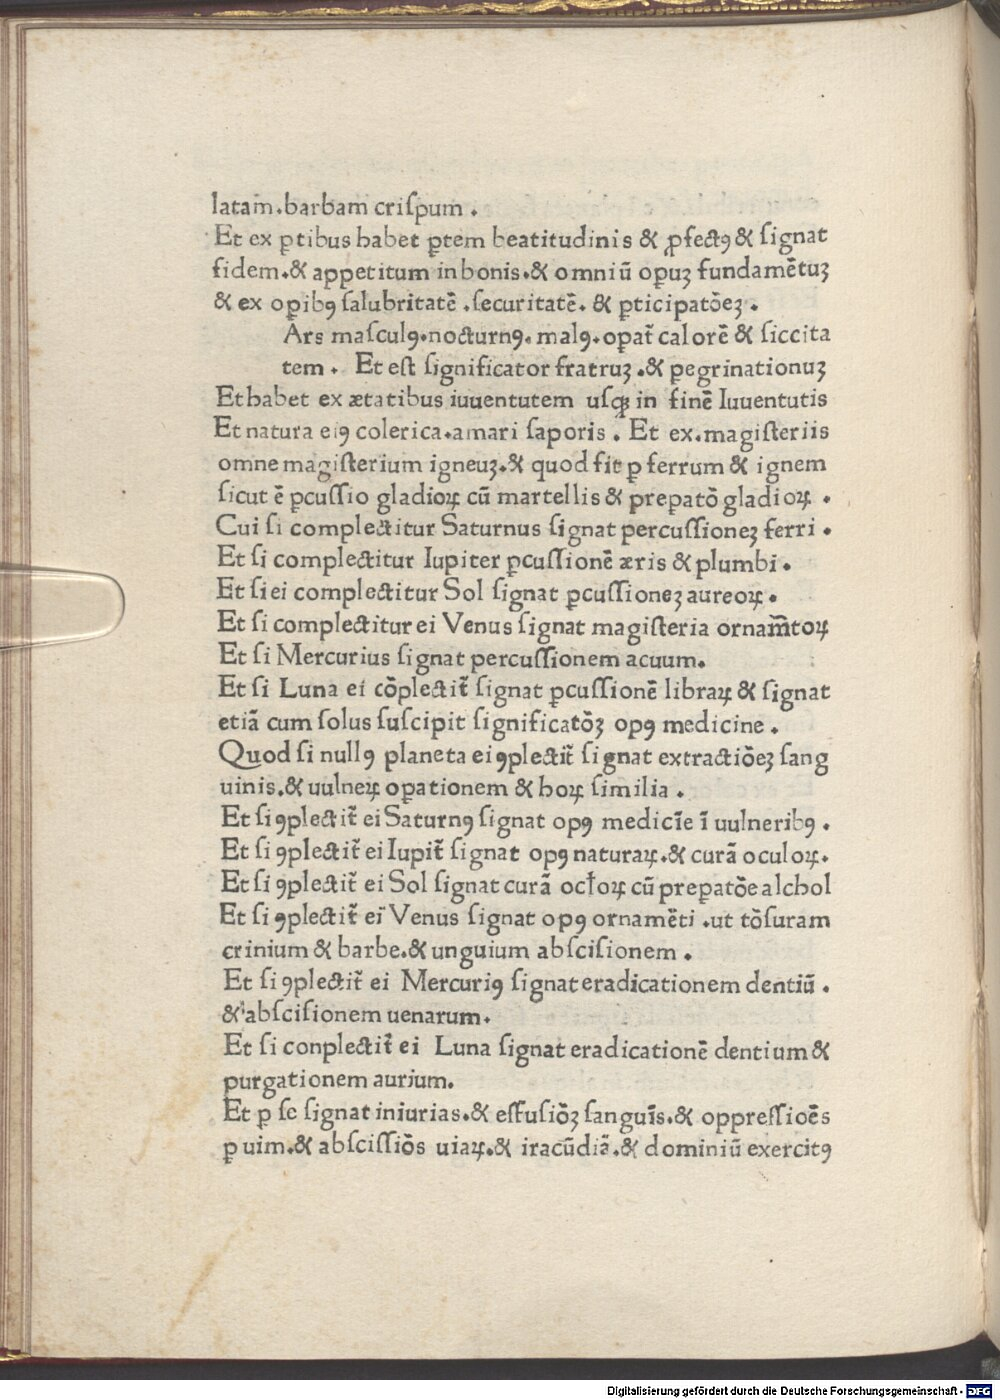 latam.barbam criſpum.
Et ex ꝑtibus habet ꝑtem beatitudinis & ꝓfectꝰ & ſignat
fidem.& appetitum in bonis.& omniū oꝑuꝫ fundamētuꝫ
& ex oꝑibꝰ ſalubritatē .ſecuritatē. & ꝑticipatōeꝫ.
Ars maſculꝰ.nocturnꝰ. malꝰ.oꝑat̄ calorē & ſiccita
tem. Et eſt ſignificator fratruꝫ .& ꝑegrinationuꝫ
Et habet ex ætatibus iuuentutem uſqꝫ in finē Iuuentutis
Et natura eiꝰ colerica.amari ſaporis. Et ex.magiſteriis
omne magiſterium igneuꝫ.& quod fit ꝑ ferrum & ignem
ſicut ē ꝑcuſſio gladioꝝ cū martellis & preꝑatō gladioꝝ.
Cui ſi complectitur Saturnus ſignat percuſſioneꝫ ferri.
Et ſi complectitur Iupiter ꝑcuſſionē æris & plumbi.
Et ſi ei complectitur Sol ſignat ꝑcuſſioneꝫ aureoꝝ.
Et ſi complectitur ei Venus ſignat magiſteria ornam̄toꝝ
Et ſi Mercurius ſignat percuſſionem acuum.
Et ſi Luna ei cōplectit̄ ſignat ꝑcuſſionē libraꝝ & ſignat
etiā cum ſolus ſuſcipit ſignificatōꝫ opꝰ medicine.
Quod ſi nullꝰ planeta ei ꝯplectit̄ ſignat extractiōeꝫ ſang
uinis.& uulneꝝ oꝑationem & hoꝝ ſimilia.
Et ſi ꝯplectit̄ ei Saturnꝰ ſignat opꝰ mediciē ī uulneribꝰ.
Et ſi ꝯplectit̄ ei Iupit̄ ſignat opꝰ naturaꝝ.& curā oculoꝝ.
Et ſi ꝯplectit̄ ei Sol ſignat curā ocƚoꝝ cū preꝑatōe alchol
Et ſi ꝯplectit̄ ei Venus ſignat opꝰ ornamēti .ut tōſuram
crinium & barbe.& unguium abſciſionem.
Et ſi ꝯplectit̄ ei Mercuriꝰ ſignat eradicationem dentiū.
& abſciſionem uenarum.
Et ſi conplectit̄ ei Luna ſignat eradicationē dentium &
purgationem aurium.
Et ꝑ ſe ſignat iniurias.& effuſiōꝫ ſanguīs.& oppreſſioēs
ꝑ uim.& abſciſſiōs uiaꝝ.& iracūdiā.& dominiū exercitꝰ
Digitalisierung gefördert durch die Deutsche Forschungsgemeinschaft - DFG